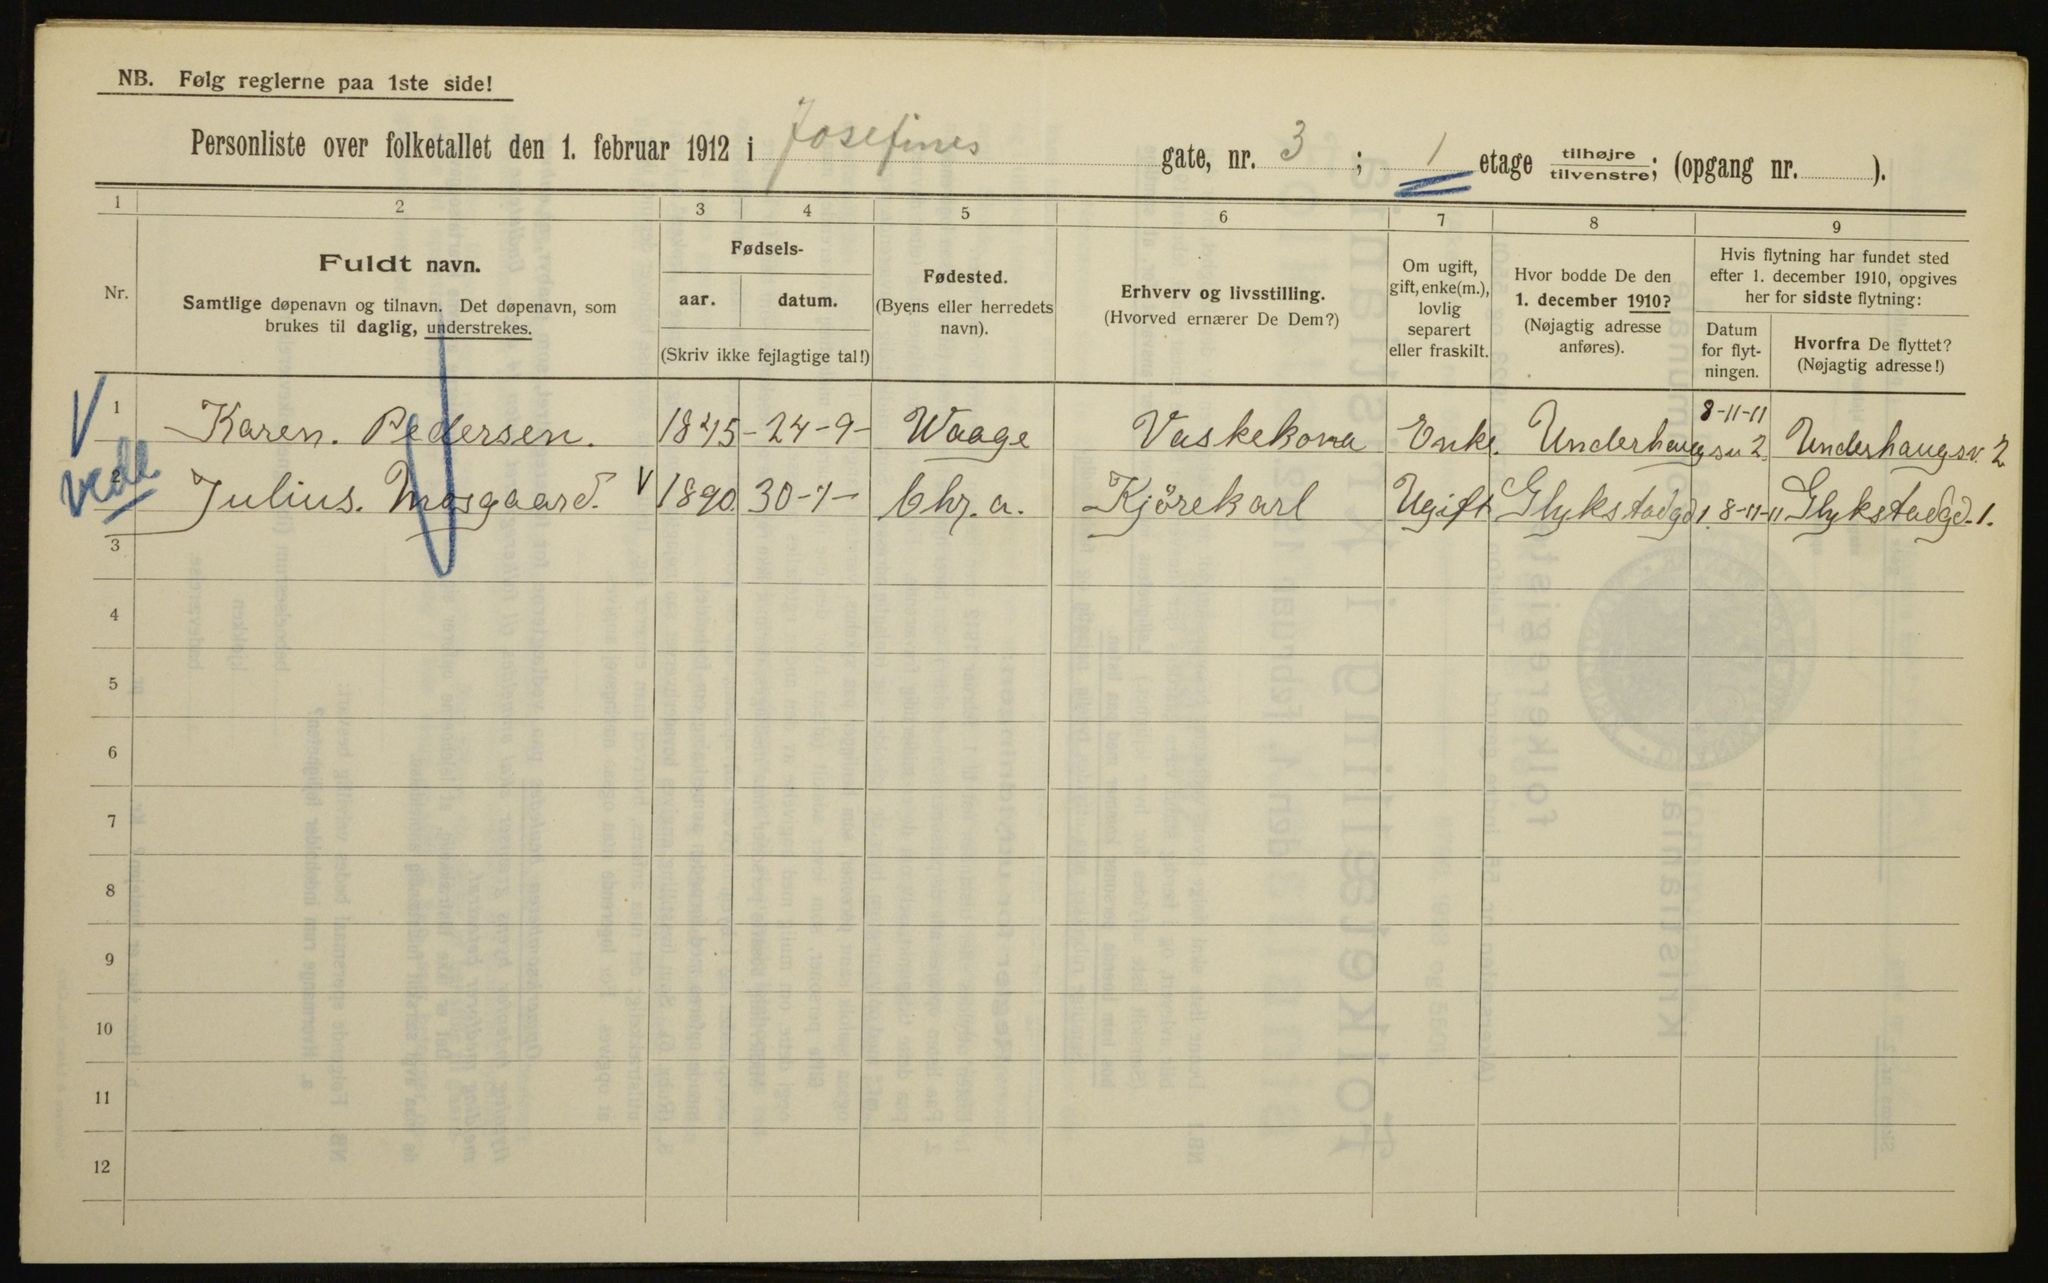 NB. Følg reglerne paa 1ste side!
Personliste over folketallet den 1. februar 1912 i Josefines gate, nr. 3 ; 1 etage tilhøjre tilvenstre; (opgang nr. ).
1 2 3 4 5 6 7 8 9
Nr.
Fuldt navn.
Samtlige døpenavn og tilnavn. Det døpenavn, som
brukes til daglig, understrekes.
Fødsels-
aar. datum.
(Skriv ikke fejlagtige tal!)
Fødested.
(Byens eller herredets
navn).
Erhverv og livsstilling.
(Hvorved ernærer De Dem?)
Om ugift,
gift, enke(m.),
lovlig
separert
eller fraskilt.
Hvor bodde De den
1. december 1910?
(Nøjagtig adresse
anføres).
Hvis flytning har fundet sted
efter 1. december 1910, opgives
her for sidste flytning:
Datum
for flyt-
ningen.
Hvorfra De flyttet?
(Nøjagtig adresse!)
V 1 Karen. Pedersen. 1845 - 24-9- Waage Vaskekona Enke. Underhaugsv 2. 8-11-11 Underhaugsv. 2
vedl. 2 Julius. Mosgaard. V 1890. 30-7- Chr. a. Kjörekarl Ugift Glykstadgd 1. 8-11-11 Glykstadgd. 1.
3
4
5
6
7
8
9
10
11
12